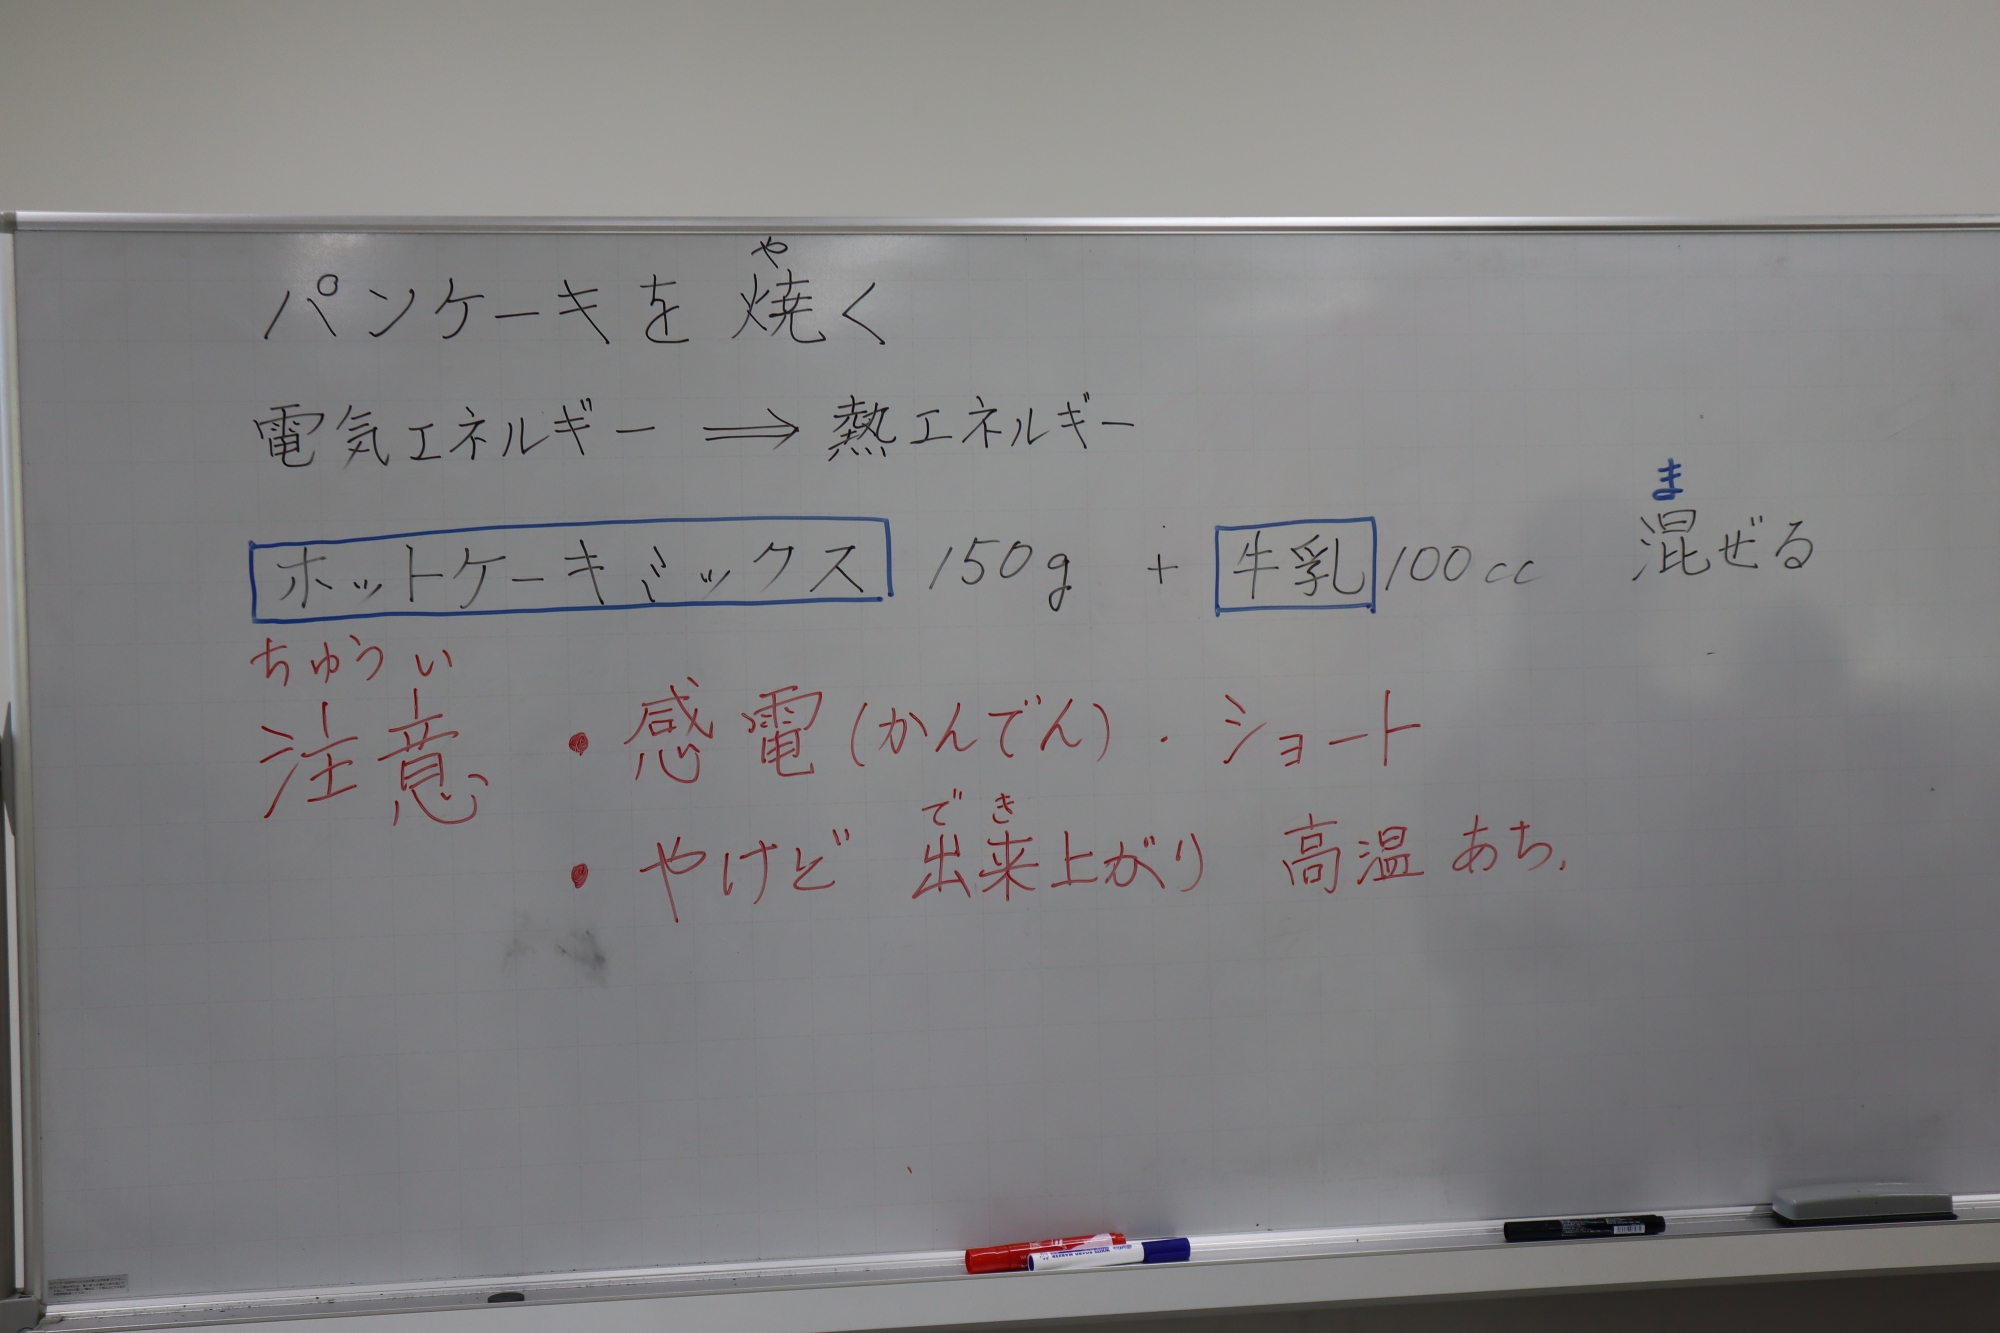 や
パンケーキを焼く
電気エネルギー ⇒ 熱エネルギー
ま
ホットケーキミックス 150g + 牛乳 100cc 混ぜる
ちゅうい
注意 ・感電(かんでん)・ショート
でき
・やけど 出来上がり 高温 あち、